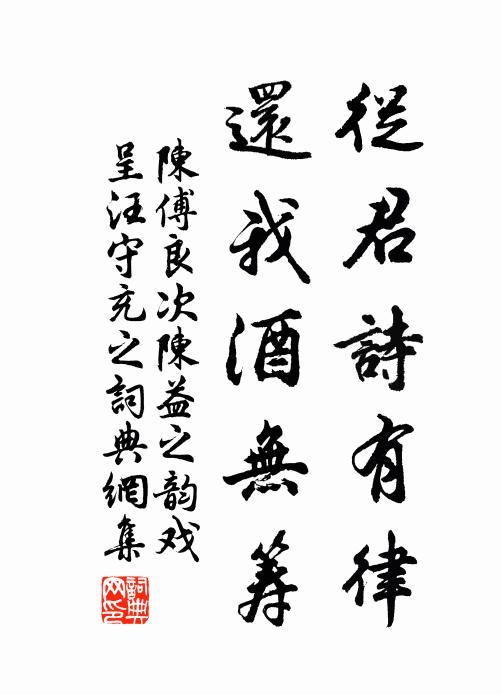 從君詩有律
還我酒無筭
陳傅良次陳益之韵戏
呈汪守充之詞典網集
詞典网印